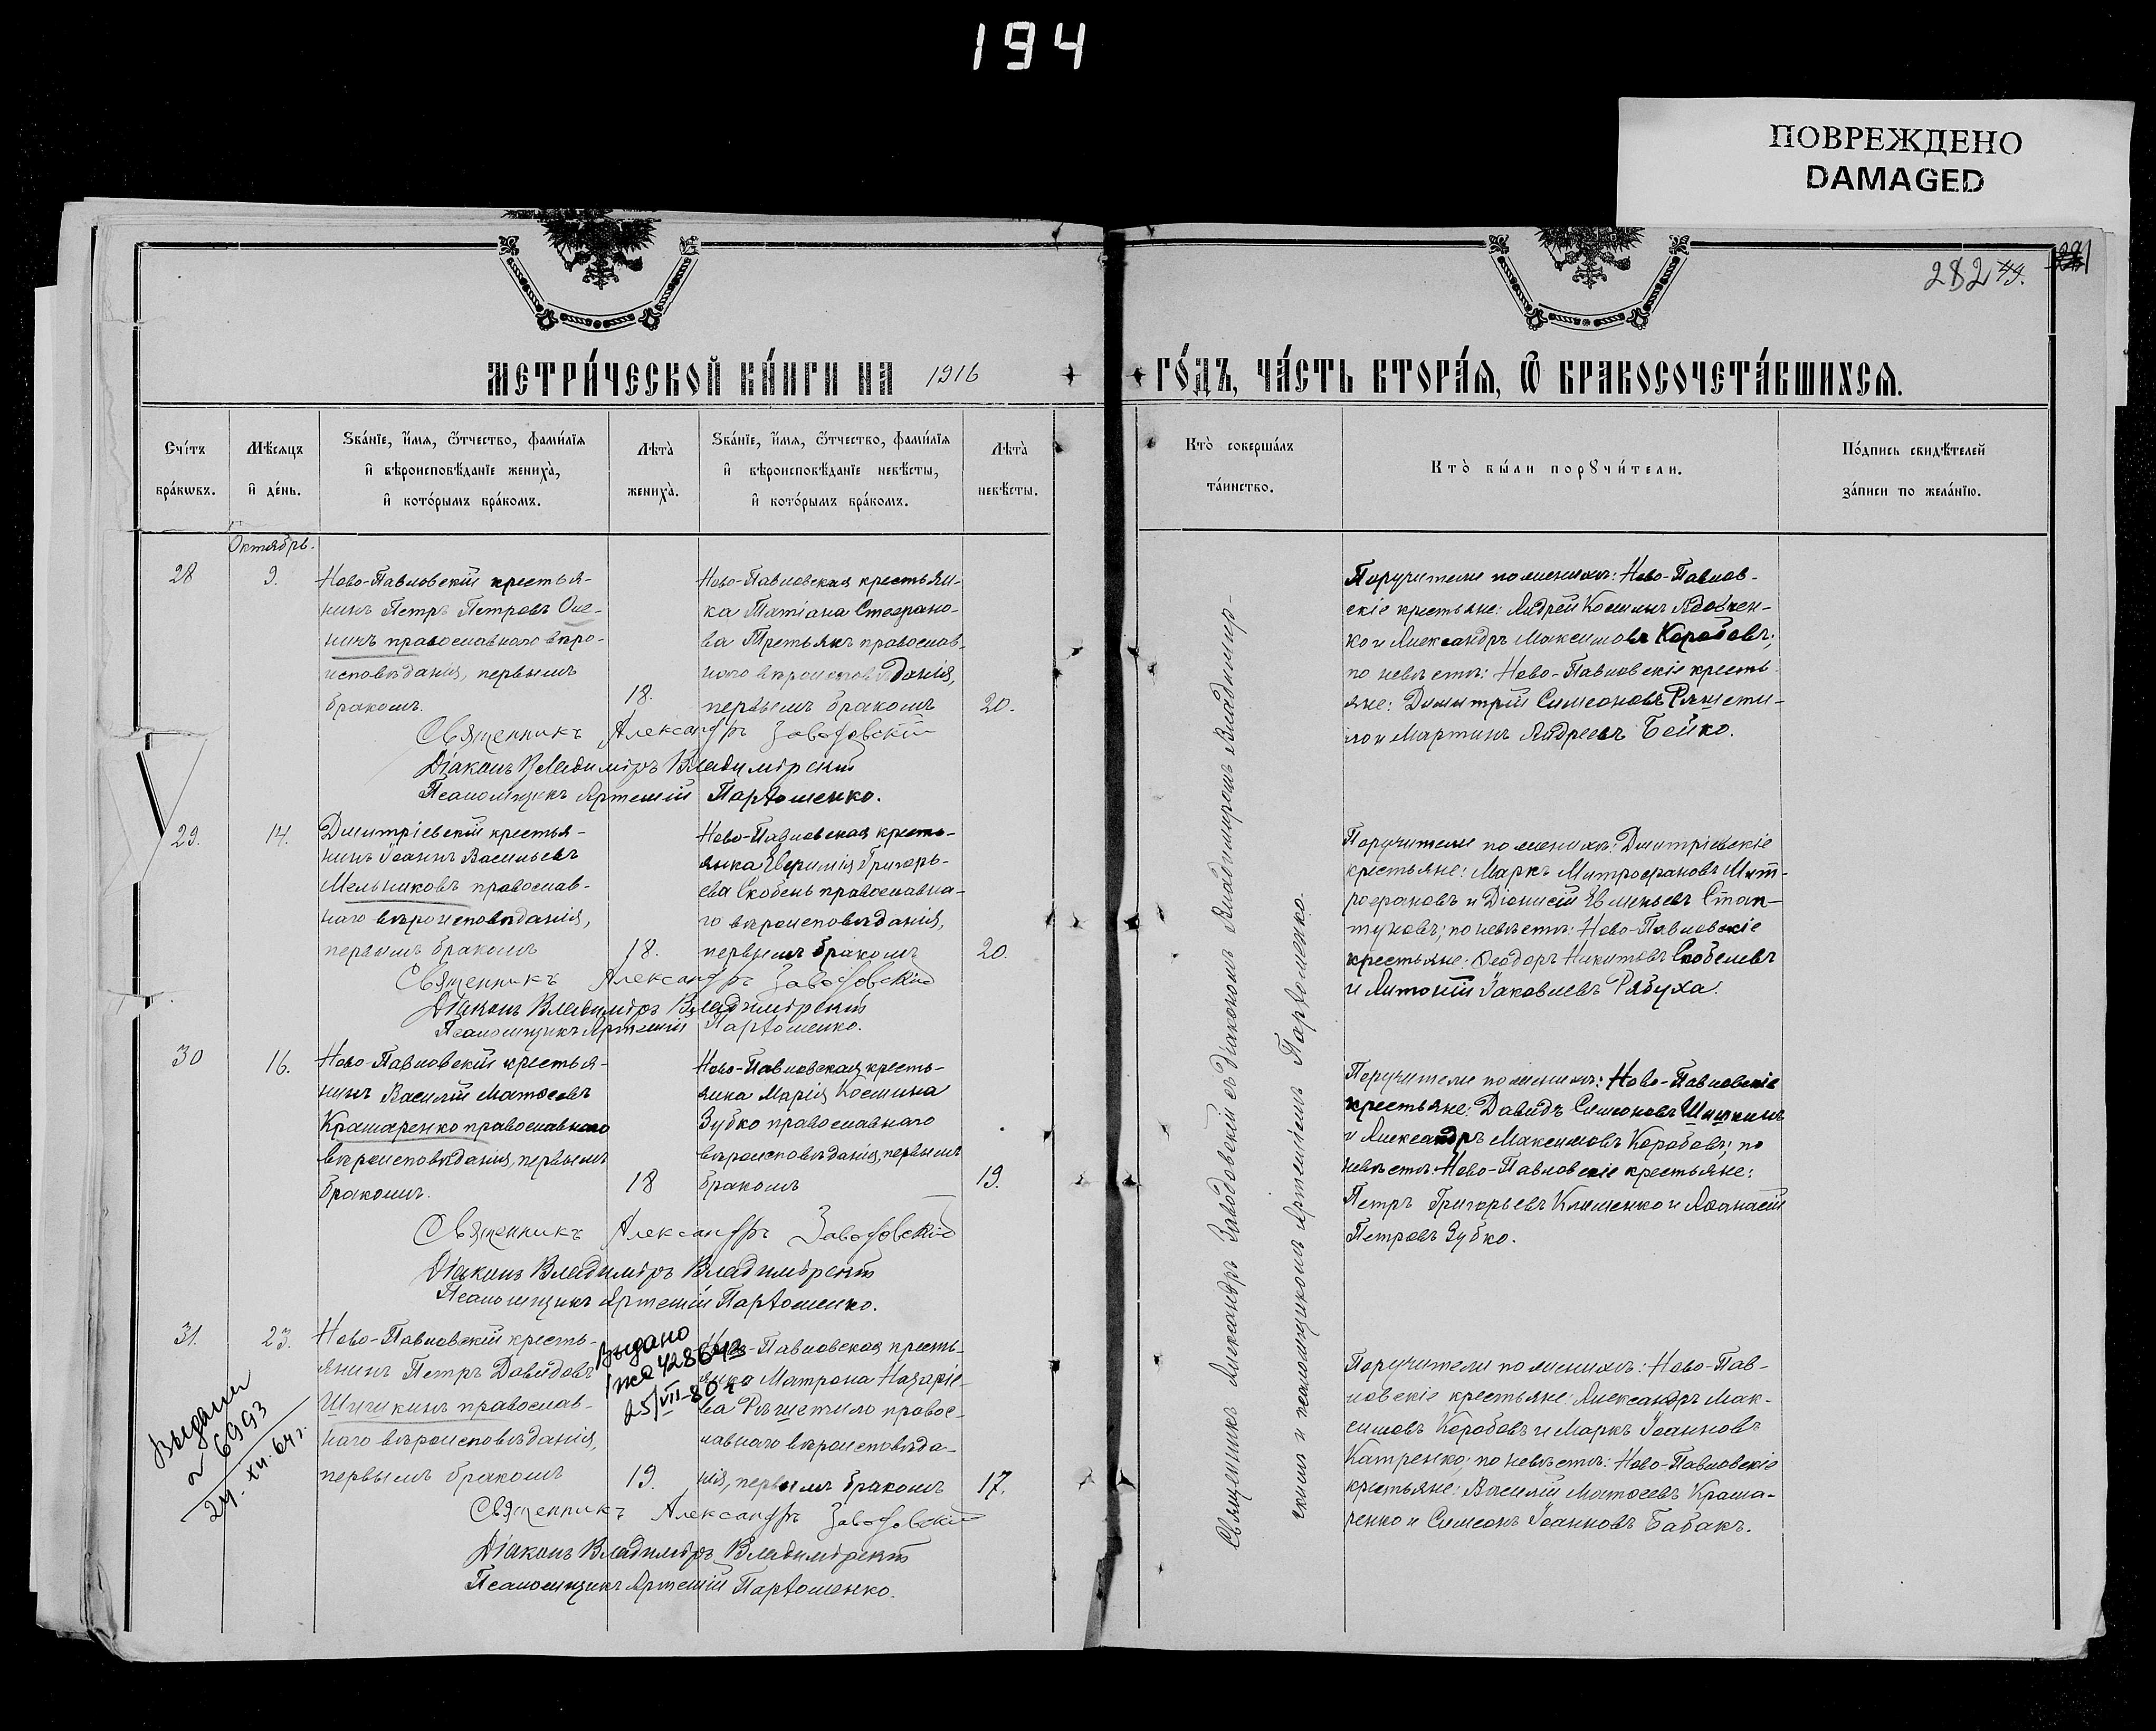 194
ПОВРЕЖДЕНО
DAMAGED
282 49.
МЕТРИ́ЧЕСКОЙ КНИ́ГИ НА 1916 ГО́ДЪ, ЧА́СТЬ ВТОРА́Я, Ѿ БРАКОСОЧЕТА́ВШИХСЯ.
Сче́тъ
бра́кѡвъ.
Мѣ́сяцъ
и҆ де́нь.
Ѕва́нїе, и҆́мѧ, ѻ҆́тчество, фами́лїѧ
и҆ вѣроисповѣ́данїе жениха̀,
и҆ кото́рымъ бра́комъ.
Лѣта̀
жениха̀.
Ѕва́нїе, и҆́мѧ, ѻ҆́тчество, фами́лїѧ
и҆ вѣроисповѣ́данїе невѣ́сты,
и҆ кото́рымъ бра́комъ.
Лѣта̀
невѣ́сты.
Кто̀ соверша́лъ
та́инство.
Кто̀ бы́ли порꙋчи́тели.
По́дпись свидѣ́телей
за́писи по жела́нїю.
Октябрь.
28
9.
Ново-Павловскій крестья-
нинъ Петръ Петровъ Оле-
нинъ православнаго вѣро-
исповѣданія, первымъ
бракомъ.
18.
Ново-Павловская крестьян-
ка Татіана Стефано-
ва Третьякъ православ-
наго вѣроисповѣданія,
первымъ бракомъ
20.
Священникъ Александръ Заводовскій
Діаконъ Владиміръ Владимірскій
Псаломщикъ Артемій Пархоменко.
Поручители по женихѣ: Ново-Павлов-
скіе крестьяне: Андрей Косьминъ Вдовчен-
ко и Александръ Максимовъ Коробовъ;
по невѣстѣ: Ново-Павловскіе кресть-
яне: Димитрій Симеоновъ Рѣшети-
ло и Мартинъ Андреевъ Бейко.
29.
14.
Дмитріевскій крестья-
нинъ Іоаннъ Васильевъ
Мельниковъ православ-
наго вѣроисповѣданія,
первымъ бракомъ
18.
Ново-Павловская кресть-
янка Евфимія Григорь-
ева Скобель православна-
го вѣроисповѣданія,
первымъ бракомъ
20.
Священникъ Александръ Заводовскій
Діаконъ Владиміръ Владимірскій
Псаломщикъ Артемій Пархоменко.
Поручители по женихѣ: Дмитріевскіе
крестьяне: Маркъ Митрофановъ Мит-
рофановъ и Діонисій Евменьевъ Стап-
туновъ; по невѣстѣ: Ново-Павловскіе
крестьяне: Ѳеодоръ Никитовъ Скобелевъ
и Антоній Іаковлевъ Рябуха.
30
16.
Ново-Павловскій крестья-
нинъ Василій Матѳеевъ
Крамаренко православнаго
вѣроисповѣданія, первымъ
бракомъ.
18
Ново-Павловская кресть-
янка Марія Космина
Зубко православнаго
вѣроисповѣданія, первымъ
бракомъ
19.
Священникъ Александръ Заводовскій
Діаконъ Владиміръ Владимірскій
Псаломщикъ Артемій Пархоменко.
Поручители по женихѣ: Ново-Павловскіе
крестьяне: Давидъ Симеоновъ Шишкинъ
и Александръ Максимовъ Коробовъ; по
невѣстѣ: Ново-Павловскіе крестьяне:
Петръ Григорьевъ Клименко и Аѳанасій
Петровъ Зубко.
31.
23.
Ново-Павловскій кресть-
янинъ Петръ Давидовъ
Шишкинъ православ-
наго вѣроисповѣданія,
первымъ бракомъ
19.
Ново-Павловская кресть-
янка Матрона Назаріе-
ва Рѣшетило правос-
лавнаго вѣроисповѣда-
нія, первымъ бракомъ
17.
Выдано
25/VII-80г
Выдали
~ 6993
24.XII.64г.
Священникъ Александръ Заводовскій
Діаконъ Владиміръ Владимірскій
Псаломщикъ Артемій Пархоменко.
Поручители по женихѣ: Ново-Пав-
ловскіе крестьяне: Александръ Мак-
симовъ Коробовъ и Маркъ Іоанновъ
Катренко; по невѣстѣ: Ново-Павловскіе
крестьяне: Василій Матѳеевъ Крама-
ренко и Симеонъ Іоанновъ Бабакъ.
Священникъ Александръ Заводовскій съ діакономъ Владиміромъ Владимір-
скимъ и псаломщикомъ Артеміемъ Пархоменко.